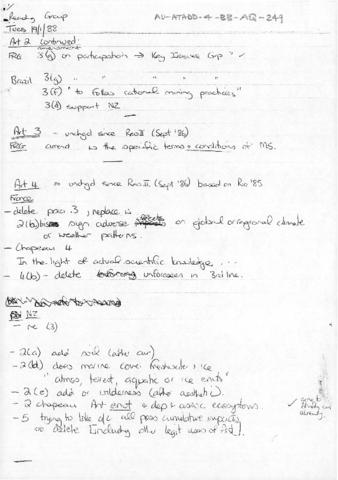 Reading Group
AU-ATADD-4-BB-AQ-249
Tues 19/1/88
Art 2 Continued:
FRG 3(g) on participation → Key Issues Grp " ✓
Brazil 3(g) " " " "
3(f) "to follow rational mining practices"
3(d) support NZ
Art 3 - unchgd since Rio II (Sept '86)
FRG: amend to the specific terms + conditions of MS.
Art 4 unchgd since Rio II. (Sept '86) based on Rio '85
France
- delete para. 3, replace
2(b) sign adverse effects on global or regional climate
or weather patterns.
- Chapeau 4
In the light of actual scientific knowledge, ...
- 4(b) - delete unforeseen in 3rd line.
NZ
- re (3)
- 2(a) add soil (after air)
- 2(d) does marine cover freshwater + ice
" atmos, terrest, aquatic or ice envts "
- 2(e) add or wilderness (after aesthetic).
- 2 chapeau Ant envt + dep + assoc ecosystems. ✓
- 5 trying to take a/c all poss cumulative impacts
or delete [including other legit uses of Ant].